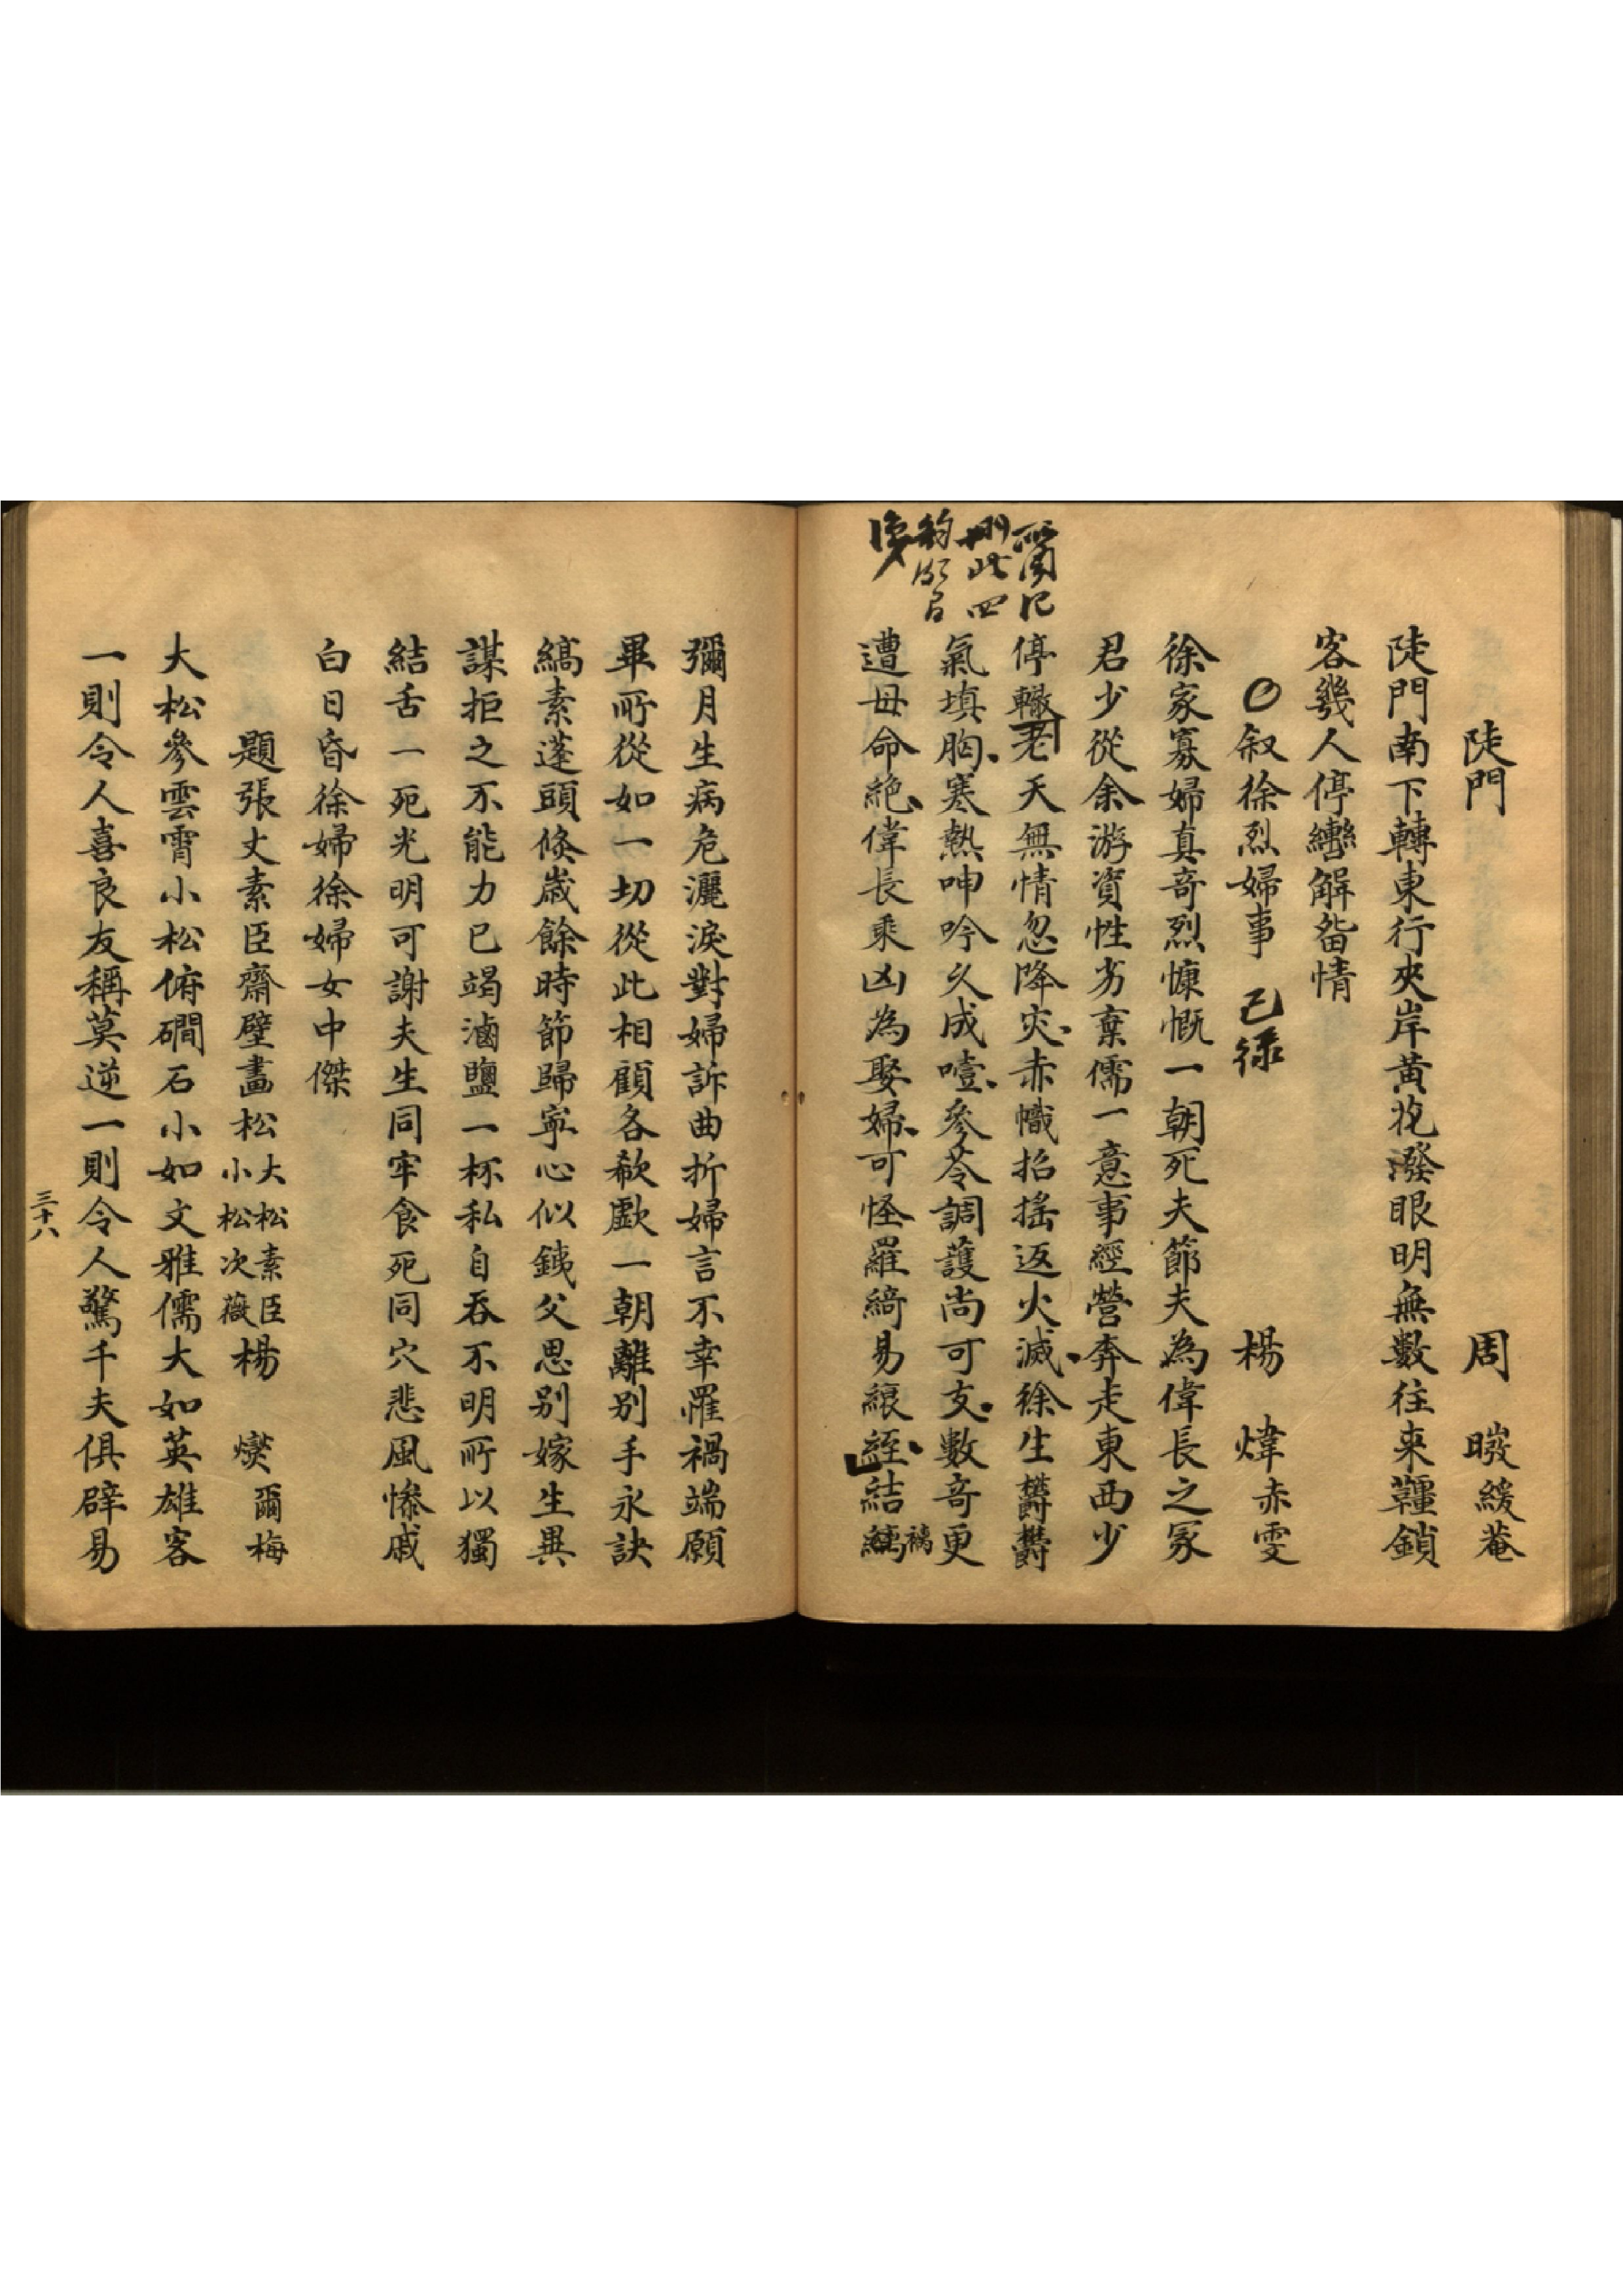 陡門　周　緩菴
陡門南下轉東行夾岸黃花潑眼明無數往來韁鎖
客幾人停轡解畱情
叙徐烈婦事　已錄　楊　煒赤雯
徐家寡婦真奇烈慷慨一朝死夫節夫為偉長之冢
君少從余游資性劣棄儒一意事經營奔走東西少
停轍老天無情忽降災赤幟招搖返火滅徐生欝欝
氣填胸寒熱呻吟久成噎參苓調護尚可支數奇更
遭毋命絶偉長乘凶為娶婦可怪羅綺易縗絰結褵
刪此四
彌月生病危灑淚對婦訴曲折婦言不幸罹禍端願
畢所從如一切從此相顧各欷歔一朝離別手永訣
縞素蓬頭倐嵗餘時節歸寧心似鉄父思别嫁生異
謀拒之不能力已竭滷鹽一杯私自吞不明所以獨
結舌一死光明可謝夫生同牢食死同穴悲風慘戚
白日昏徐婦徐婦女中傑
題張丈素臣齋壁畫松大松素臣小松次薇楊　爕爾梅
大松參雲霄小松俯磵石小如文雅儒大如英雄客
一則令人喜良友稱莫逆一則令人驚千夫俱辟易
三十八